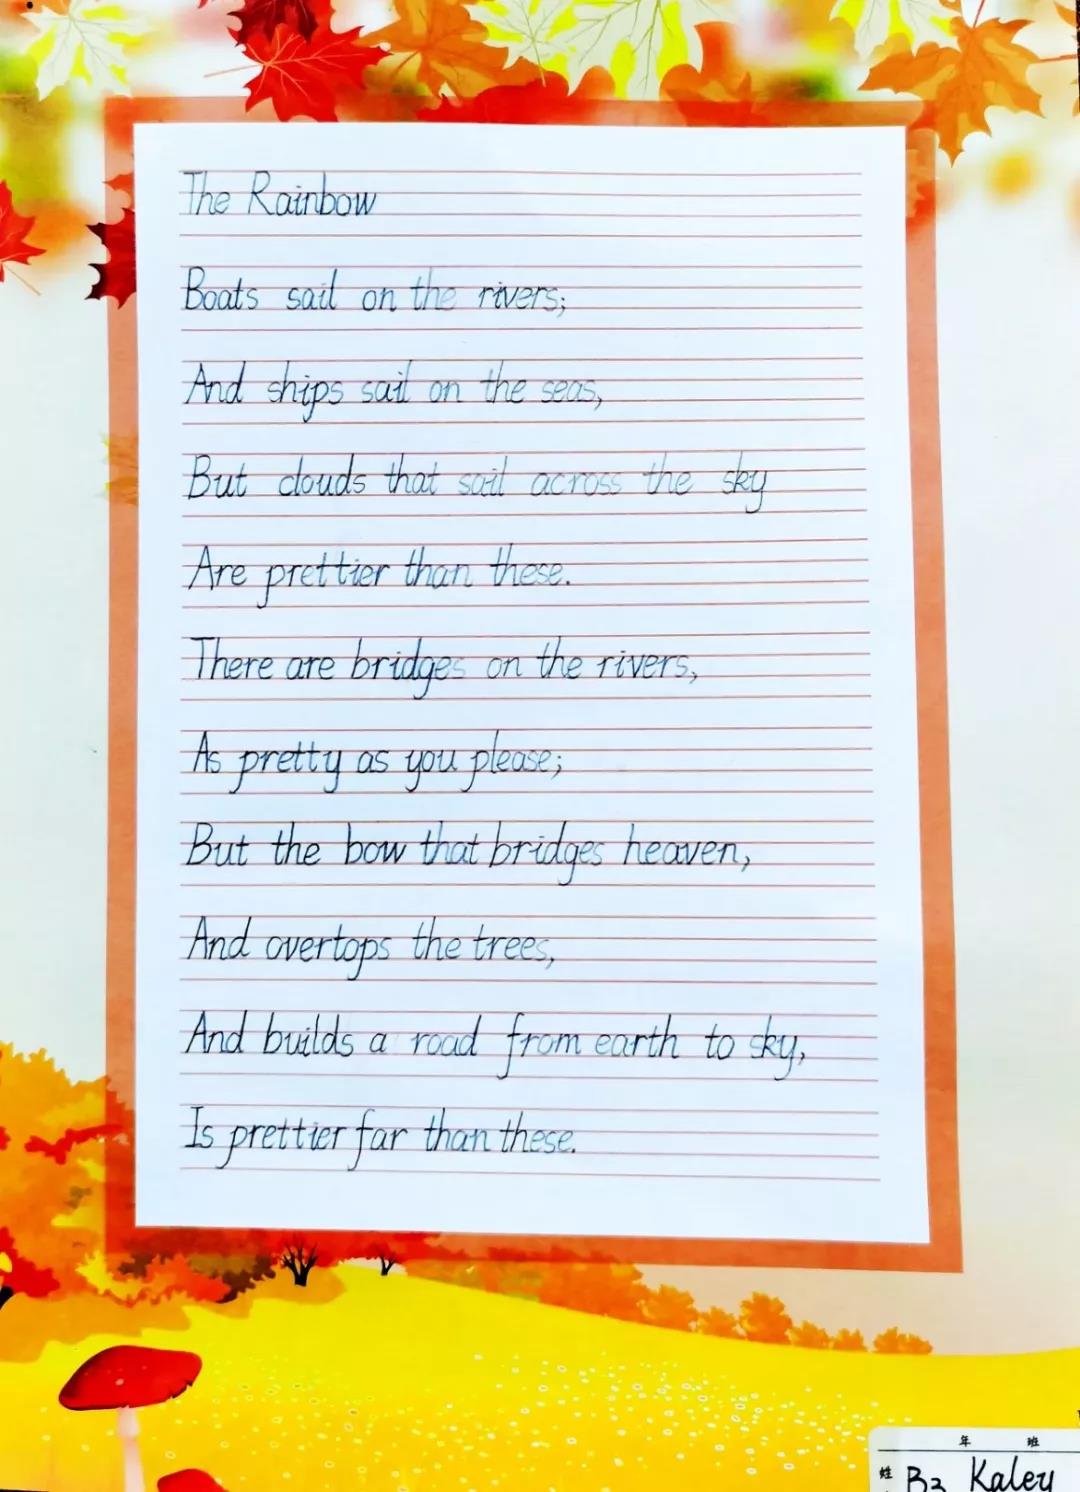 The Rainbow
Boats sail on the rivers;
And ships sail on the seas,
But clouds that sail across the sky
Are prettier than these.
There are bridges on the rivers,
As pretty as you please;
But the bow that bridges heaven,
And overtops the trees,
And builds a road from earth to sky,
Is prettier far than these.
年 班
姓 B3 Kaley